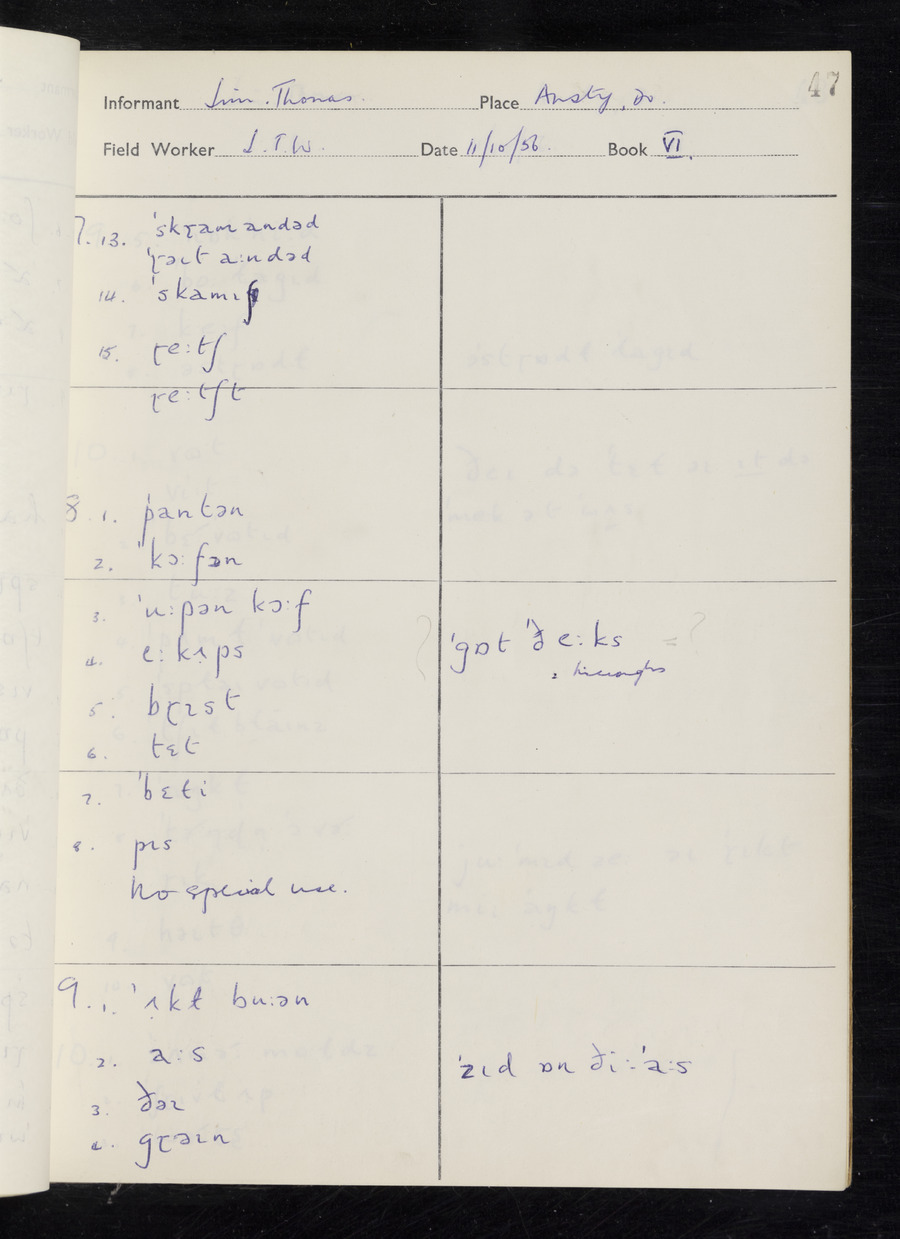 47
Informant Jim. Thomas. Place Ansty, Do.
Field Worker J.T.W. Date 11/10/56. Book VI.
7. 13. ˈskɽam andəd
ˈɽəɪt a:ndəd
14. ˈskamɪʃ
15. ɽe:tʃ
ɽe:tʃt
8. 1. ˈpantən
2. ˈkɔ:fən
3. ˈu:pən kɔ:f
4. e:kʌps
ˈgɒt ˈðe:ks = ?
: hiccoughs
5. bɽɪst
6. tɛt
7. ˈbɛti
8. pɪs
No special use.
9. 1. ˈʌkt bu:ən
2. a:s
ˈzɪd ɒn ði:ˈa:s
3. ðəɪ
4. gɽəɪn